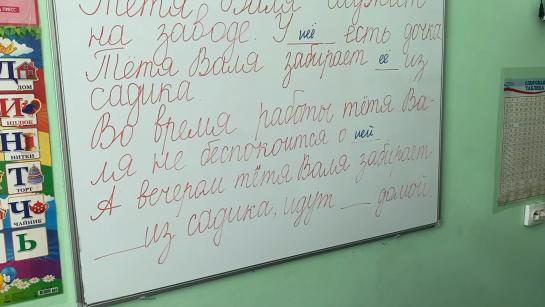 Тётя Валя служит
на заводе. У неё есть дочка.
Тётя Валя забирает её из
садика.
Во время работы тётя Ва-
ля не беспокоится о ней.
А вечерам тётя Валя забирает
___ из садика, идут ___ домой.
Д
ДОМ
И
Н
НИТКИ
Т
ТОРТ
Ч
ЧАЙНИК
Ь